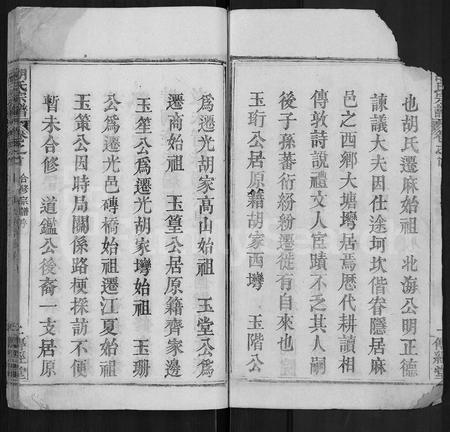 也胡氏遷麻始祖 北海公明正德
諫議大夫因仕途坷坎偕眷隱居麻
邑之西鄉大塘塆居焉歷代耕讀相
傳敦詩說禮文人宦蹟不乏其人嗣
後子孫蕃衍紛紛遷徙有自來也
玉珩公居原籍胡家西塆 玉階公
爲遷光胡家高山始祖 玉堂公爲
遷商始祖 玉篁公居原籍齊家邊
玉笙公爲遷光胡家塆始祖 玉珊
公爲遷光邑磚橋始祖遷江夏始祖
玉策公因時局關係路梗採訪不便
暫未合修 道鑑公後裔一支居原
胡氏宗譜
合修宗譜序
傳經堂